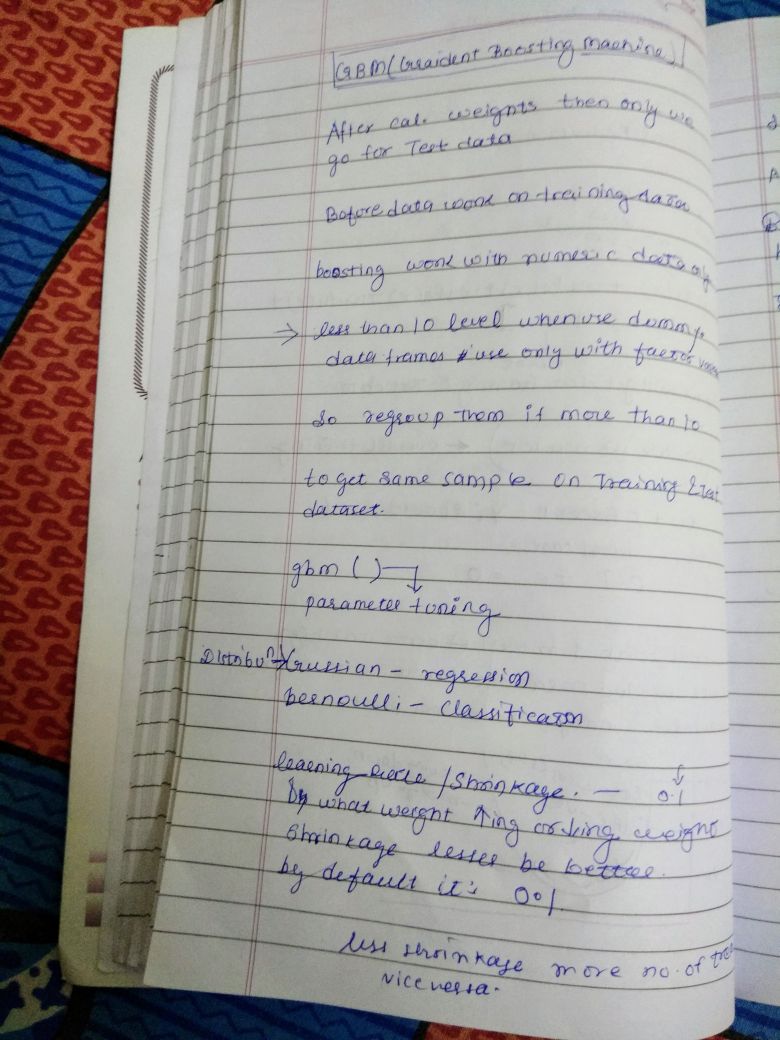 GBM (Graident Boosting Machine)
After cal. weights then only we
go for Test data
Before data work on training data
boosting work with numeric data only
→ less than 10 level when use dummy
data frames use only with factor
So regroup them if more than 10
to get same sample on Training & test
dataset.
gbm ( )
parameter tuning
Distribuⁿ → Gaussian - regression
bernoulli - Classification
learning rate / Shrinkage. — 0.1
by what weight ↑ing or ↓ing weight
Shrinkage lesser be better.
by default it's 0.1
less shrinkage more no. of tree
vice versa.